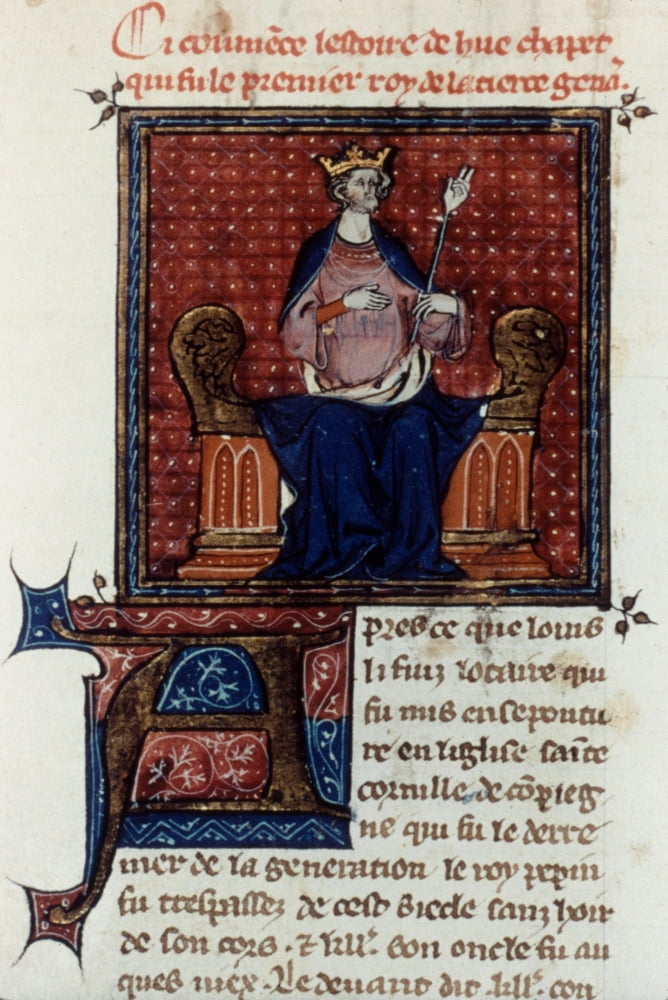 Ci comm̄ece lestoire de hue chapet
qui fu le premier roy de la tierce gen̄a.
Apres ce que louis
li fiuz lotaire qui
fu mis en sepoutu
re en leglise sainte
cornille de cōpieg
ne qui fu le derre
nier de la generation le roy pepin
fu trespassez de cest siecle sanz hoir
de son cors. ⁊ kll'. son oncle fu au
ques viex. Le devant dit kll'. con